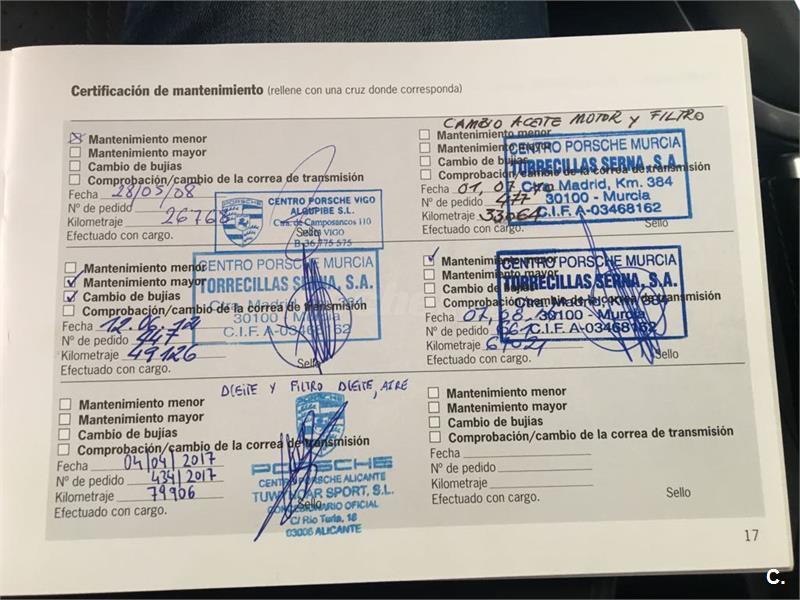 Certificación de mantenimiento (rellene con una cruz donde corresponda)
Mantenimiento menor
Mantenimiento mayor
Cambio de bujías
Comprobación/cambio de la correa de transmisión
Fecha 28/05/08
Nº de pedido
Kilometraje 26768
Efectuado con cargo.
Sello
CENTRO PORSCHE VIGO
ALQUPIBE S.L.
Ctra. de Camposancos 110
VIGO
B 36 775 575
CAMBIO ACEITE MOTOR y FILTRO
Mantenimiento menor
Mantenimiento mayor
Cambio de bujías
Comprobación/cambio de la correa de transmisión
Fecha 01, 07, 10
Nº de pedido 477
Kilometraje 33064
Efectuado con cargo.
Sello
CENTRO PORSCHE MURCIA
TORRECILLAS SERNA, S.A.
Ctra. Madrid, Km. 384
30100 - Murcia
C.I.F. A-03468162
Mantenimiento menor
Mantenimiento mayor
Cambio de bujías
Comprobación/cambio de la correa de transmisión
Fecha 12.06.12
Nº de pedido 447
Kilometraje 49126
Efectuado con cargo.
Sello
CENTRO PORSCHE MURCIA
TORRECILLAS SERNA, S.A.
Ctra. Madrid, Km. 384
30100 - Murcia
C.I.F. A-03468162
Mantenimiento menor
Mantenimiento mayor
Cambio de bujías
Comprobación/cambio de la correa de transmisión
Fecha
Nº de pedido 661
Kilometraje
Efectuado con cargo.
Sello
CENTRO PORSCHE MURCIA
TORRECILLAS SERNA, S.A.
Ctra. Madrid, Km. 384
30100 - Murcia
C.I.F. A-03468162
Y FILTRO , AIRE
Mantenimiento menor
Mantenimiento mayor
Cambio de bujías
Comprobación/cambio de la correa de transmisión
Fecha 04/04/2017
Nº de pedido 434/2017
Kilometraje 79906
Efectuado con cargo.
Sello
PORSCHE
CENTRO PORSCHE ALICANTE
SPORT, S.L.
CONCESIONARIO OFICIAL
C/ Río Turia, 18
03006 ALICANTE
Mantenimiento menor
Mantenimiento mayor
Cambio de bujías
Comprobación/cambio de la correa de transmisión
Fecha
Nº de pedido
Kilometraje
Efectuado con cargo.
Sello
17
C.